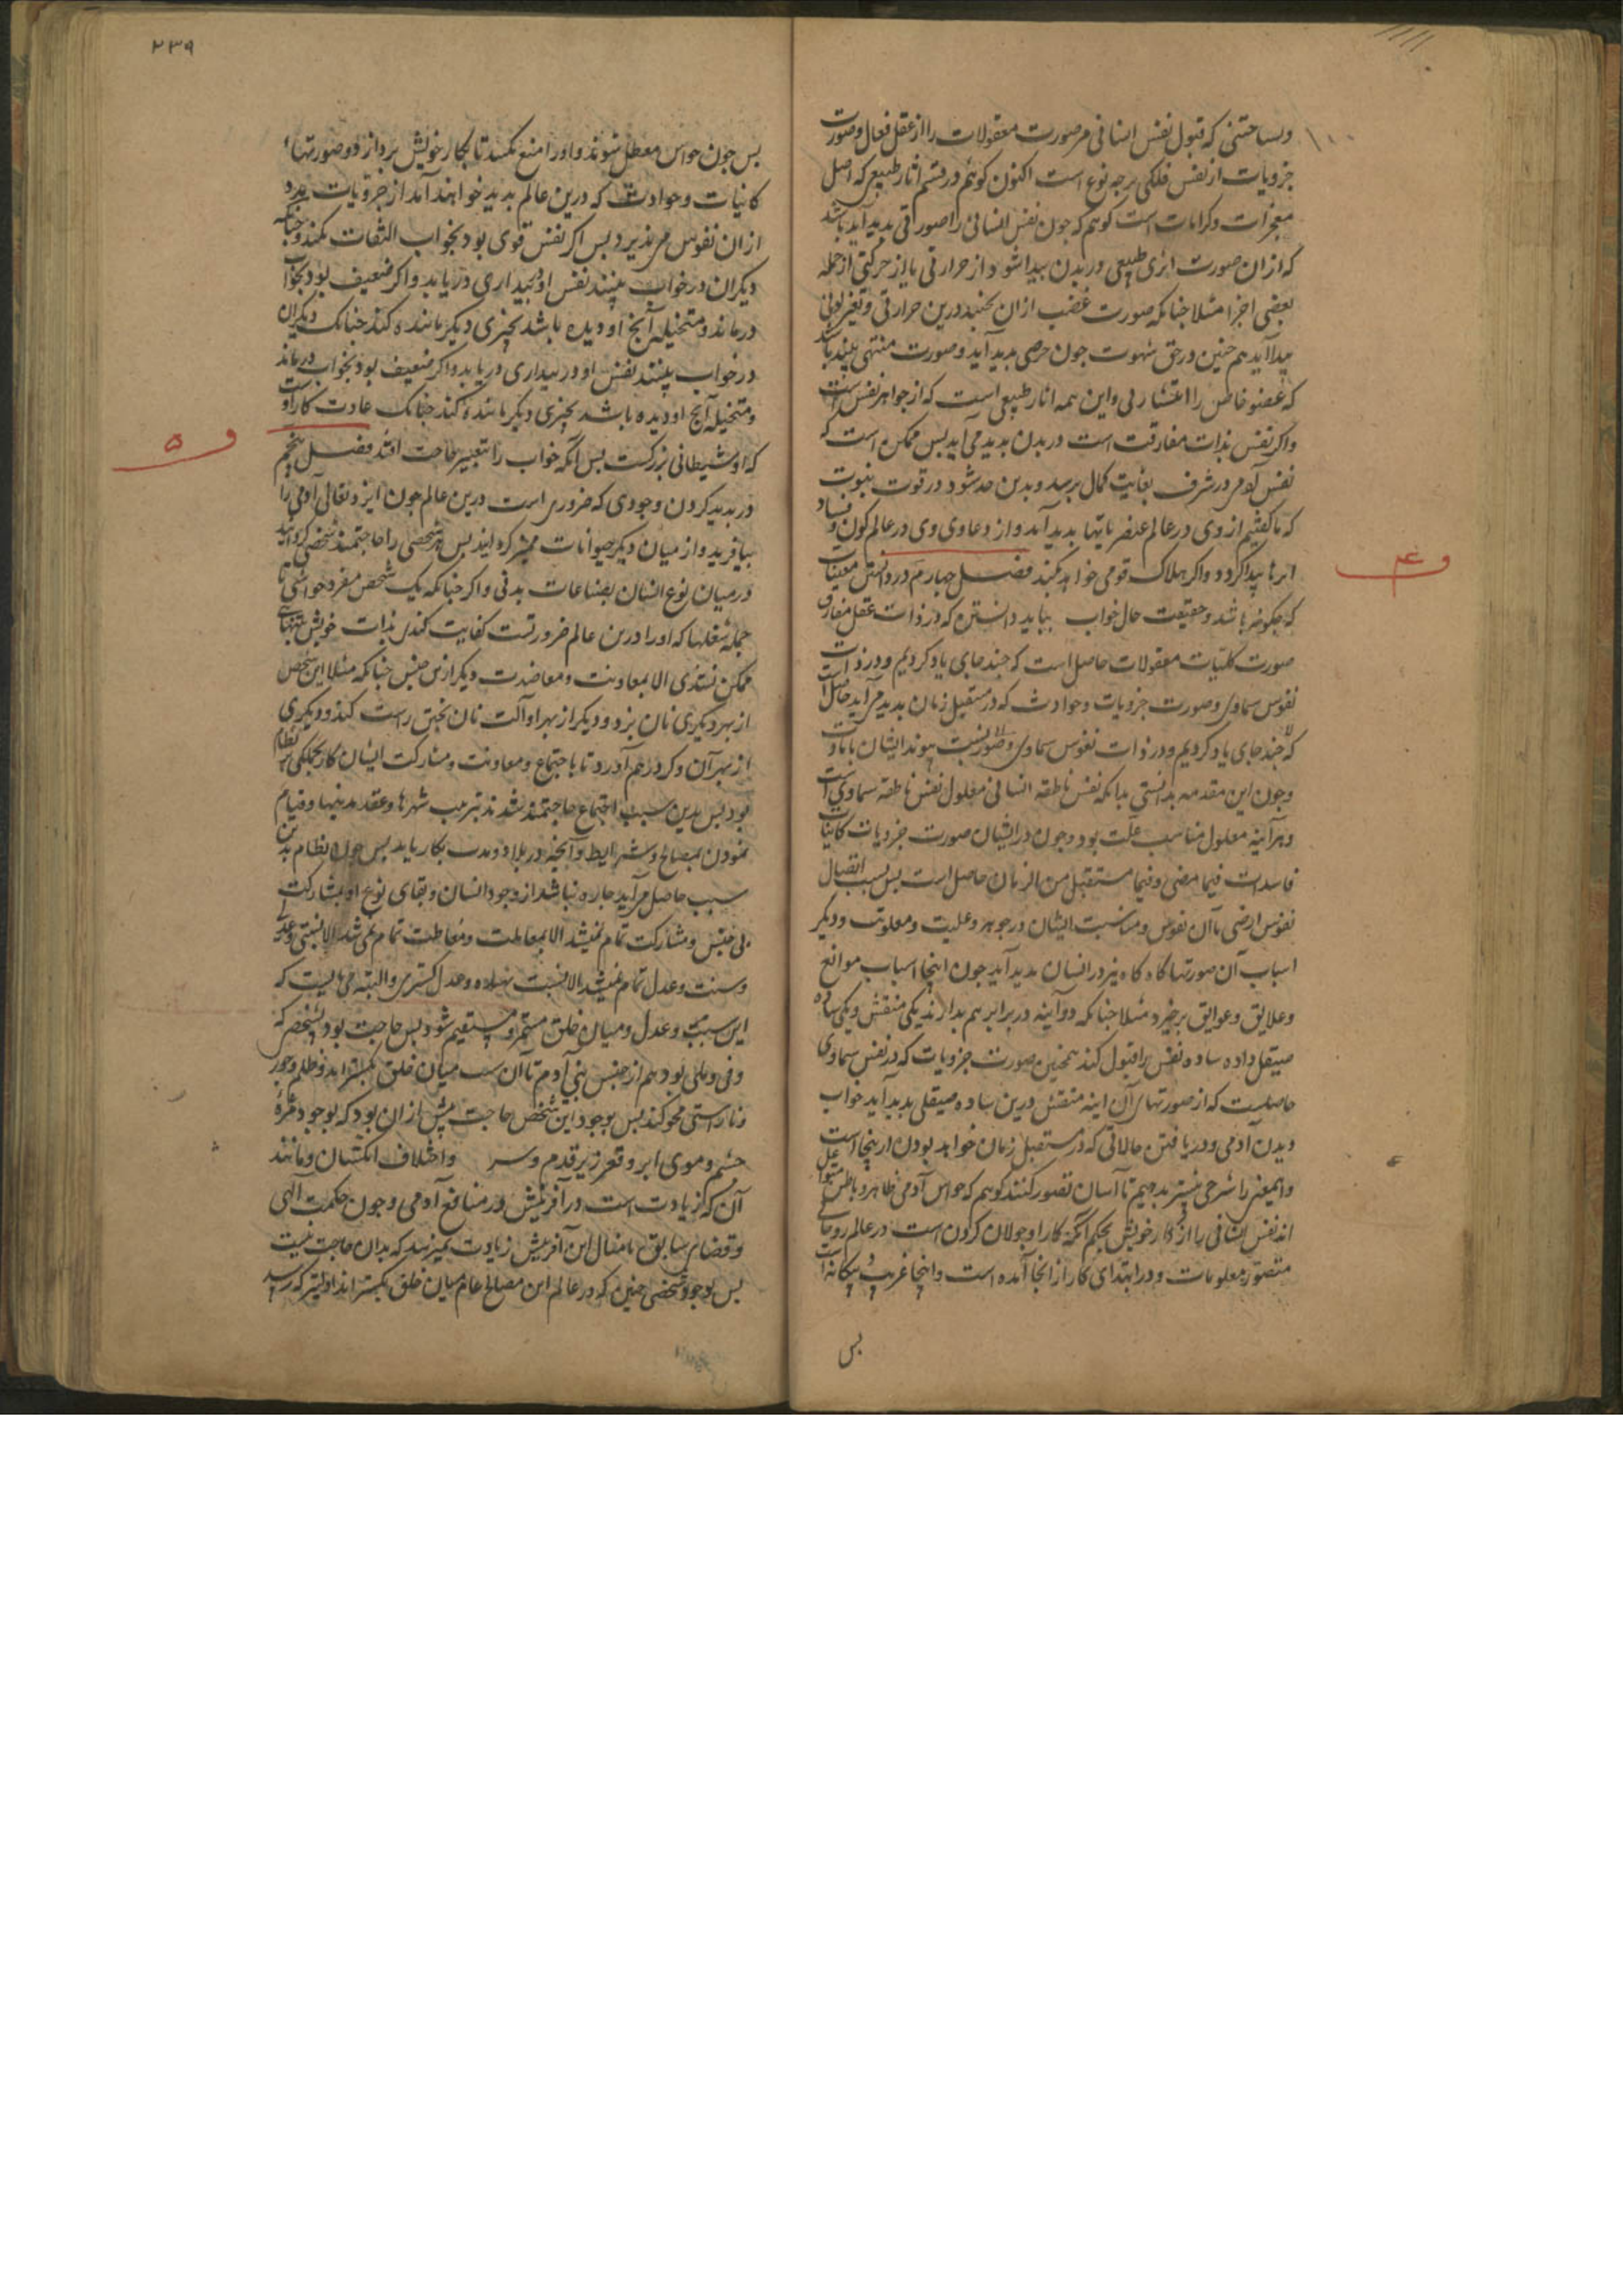 وبساختنی که قبول نفس انسانی مر صورت معقولات را از عقل فعال وصورت
جزویات از نفس فلکی برچه نوع است اکنون کوئیم در قسم اثار طبیعی که اصل
معجزات وکرامات است کوهم که جون نفس انسانی را صورتی بدید آید باشد
که ازان صورت اثری طبیعی در بدن بیدا شود از حرارتی یا از حرکتی از جمله
بعضی اجزا مثلا جنانکه صورت غضب ازان بجنبد درین حرارتی وتغیر لونی
بیدا آید هم جنین در حق شهوت جون حرصی بدید آید وصورت منتهی
که عضو خاص را انتشار لی واین همه اثار طبیعی است که از جواهر نفس است
واکر نفس بذات مفارقت است در بدن بدید می آید بس ممکن است که
نفس آدمی در شرف بغایت کمال برسد وبدین حد شود در قوت نبوت
که ما کفتیم از وی در عالم عنصر یاتها بدید آید واز دعاوی وی در عالم کون وفساد
ابرها بیدا کردد واکر هلاک قومی خواهد بکند فصل جهارم در دانستن مغیبات
که جکونه باشد وحقیقت حال خواب بباید دانستن که در ذات عقل مفارق
صورت کلیات معقولات حاصل است که جند جای یاد کردیم ودر ذات
نفوس سماوی وصورت جزویات وحوادث که در مستقبل زمان بدید می آید حاصل است
که جند جای یاد کردیم ودر ذات نفوس سماوی
وجون این مقدمه بدانستی بدانکه نفس ناطقه انسانی معلول نفس ناطقه سماوی است
وهرآینه معلول مناسب علت بود وجون در ایشان صورت جزویات کاینات
فاسدات فیما مضی وفیما مستقبل من الزمان حاصل است بس بسبب اتصال
نفوس ارضی باآن نفوس ومناسبت ایشان در جوهر وعلیت ومعلولیت ودیکر
اسباب آن صورتها کاه کاه نیز در انسان بدید آید جون اینجا اسباب موانع
وعلایق وعوایق برخیزد مثلا جنانکه دو آینه در برابر هم بدارند یکی منقش ویکی ساده
صیقل داده ساده نقش را قبول کند همجنین صورت جزویات که در نفس سماوی
حاصلست که از صورتهای آن اینه منقش درین ساده صیقلی بدید آید خواب
دیدن آدمی ودر یافتن حالاتی که در مستقبل زمان خواهد بودن ازینجا است
واینمعنی را شرحی بیشتر بدهیم تا آسان تصور کنند کوهم که حواس آدمی ظاهر وباطن
اند نفس انسانی را از کار خویش بحکم آنکه کار او جولان کردن است در عالم روحانی
متصور معلومات ودر ابتدای کار از انجا آمده است واینجا غریب وبیکانه است
بس
۲۳۹
بس جون حواس معطل شوند واورا منع نکنند تا بکار خویش بردازد وصورتها
کاینات وحوادث که درین عالم بدید خواهند آمد از جزویات
ازان نفوس می بذیرد بس اکر نفس قوی بود بخواب التفات نکند وجنانکه
دیکران در خواب بینند نفس او ببیداری دریابد واکر ضعیف بود بخواب
در ماند ومتخیله آنج او دیده باشد بچیزی دیکر مانند کند جنانک دیکران
در خواب بینند نفس او در بیداری دریابد واکر ضعیف بود بخواب در ماند
ومتخیله آنج او دیده باشد بچیزی دیکر مانند کند جنانک عادت کار اوست
که او شیطانی بزرکست بس آنکه خواب را بتعبیر حاجت افتد فصل بنجم
در بدید کردن وجودی که ضروری است درین عالم جون ایزد تعالی آدمی را
بیافرید واز میان دیکر حیوانات ممیز کردانید بس هر شخصی را حاجتمند شخصی کردانید
در میان نوع انسان بضاعات بدنی واکر جنانکه یک شخص مفرد خواستی تا
جمله شغلها که اورا درین عالم ضرورتست کفایت کند بذات خویش بتنهای
ممکن نشدی الا بمعاونت ومعاضدت دیکر از بنی جنس جنانکه مثلا این شخص
از بهر دیکری نان بزد ودیکر از بهر او آلت نان بختن راست کند ودیکری
از بهر آن وکرد هم آورد تا باجتماع ومعاونت ومشارکت ایشان کار بجملکی بنظام
بود بس بدین سبب اجتماع حاجتمند شدند بترتیب شهرها وعقد مدینها وقیام
نمودن بمصالح وشرایط وآنجه در بلاد ومدن بکار باید بس جون نظام بدین
سبب حاصل می آید جاره نباشد از وجود انسان وبقای نوع او بمشارکت
بنی جنس ومشارکت تمام نمیشد الا بمعاملت ومعاملت تمام نمی شد الا بسنتی وعدل
وسنت وعدل تمام نمیشد الا بسنت نهاده وعدل کستری والبته می بایست که
این سنت وعدل ومیان خلق مستمر ومستقیم شود بس حاجت بود بشخصی که
وفی وملی بود هم از جنس بنی آدم تا آن سنت میان خلق بکستراند وظلم وجور
وناراستی محو کند بس بوجود این شخص حاجت بیش ازان بود که بوجود مژه
جشم وموی ابرو وقعر زیر قدم وسر واختلاف انکشتان ومانند
آن که زیادت است در آفرینش ودر منافع آدمی وجون حکمت الهی
وقضای سابق بامثال این آفرینش زیادت میرسد که بدان حاجت نیست
بس بوجود شخصی جنین که در عالم این مصالح عام میان خلق بکستراند اولیتر که رسد